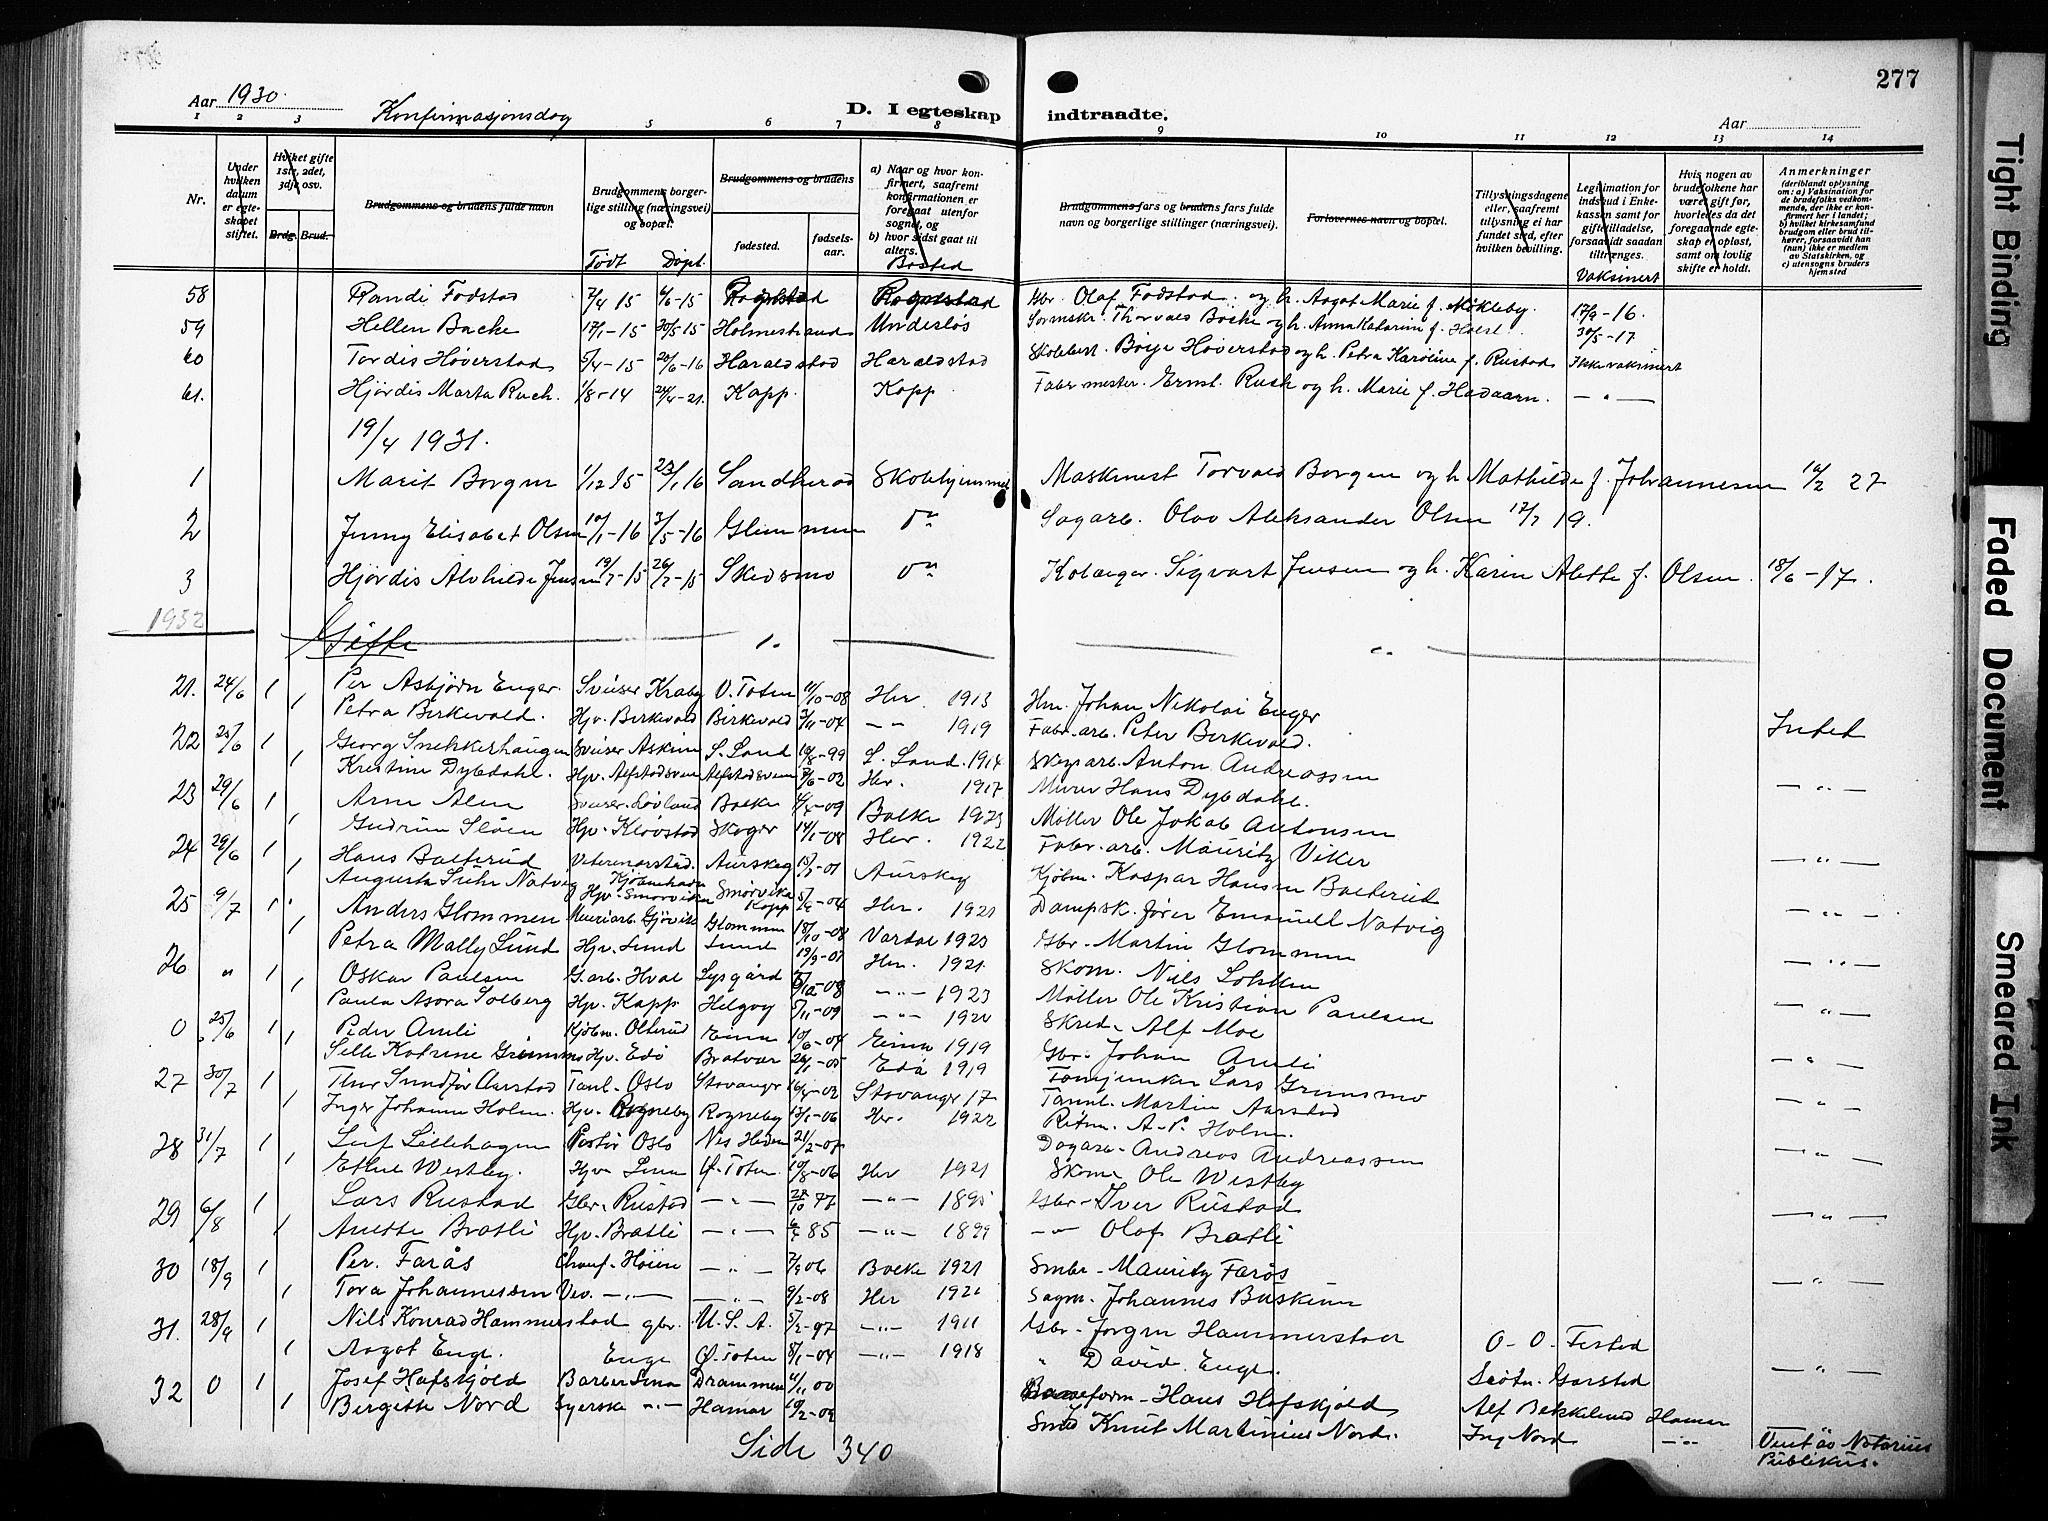 277
Aar 1930.
Konfirmasjonsdag
D. I egteskap indtraadte.
Aar
1 2 3 5 6 7 8 9 10 11 12 13 14
Nr.
Under hvilken datum er egteskapet stiftet.
Hvilket gifte 1ste, 2det, 3dje osv.
Brdg. Brud.
Brudgommens og brudens fulde navn
Brudgommens borgerlige stilling (næringsvei) og bopæl.
Født Døpt.
Brudgommens og brudens
fødested. fødselsaar.
a) Naar og hvor konfirmert, saafremt konfirmationen er foregaat utenfor sognet, og
b) hvor sidst gaat til alters.
Bosted
Brudgommens fars og brudens fars fulde navn og borgerlige stillinger (næringsvei).
Forlovernes navn og bopæl.
Tillysningsdagene eller, saafremt tillysning ei har fundet sted, efter hvilken bevilling.
Legitimation for indskud i Enkekassen samt for giftetilladelse, forsaavidt saadan tiltrænges.
Vaksinert
Hvis nogen av brudefolkene har været gift før, hvorledes da det foregaaende egteskap er opløst, samt om lovlig skifte er holdt.
Anmerkninger
(deriblandt oplysning om: a) Vaksination for de brudefolks vedkommende, der ikke er konfirmert her i landet; b) hvilket kirkesamfund brudgom eller brud tilhører, forsaavidt han (hun) ikke er medlem av Statskirken, og c) utensogns bruders hjemsted
58 Randi Fodstad 7/4 15 4/6-15 Gbr. Olaf Fodstad og h. Aagot Marie f. Mikleby. 17/9-16.
59 Hellen Backe 17/1-15 30/5 15 Holmestrand Undesløs Thorvald Backe og h. Anna Katarine f. Holst. 30/5-17
60 Tordis Høverstad 5/4-15 20/6-16 Haraldstad Haraldstad Skolebest. Børje Høverstad og h. Petra Karoline f. Rustad Ikke vaksinert
61. Hjørdis Marta Ruch. 1/8-14 24/4-21. Kapp. Kapp Fabr. mester. Ernst. Ruch og h. Marie f. Hadaarn. — " —
19/4 1931.
1 Marit Borgen 1/12 15 23/1 16 Sandherad Skolehjemmet Maskinest Torvald Borgen og h Mathilde f. Johannesen 10/2 27
2 Jenny Elisabet Olsen 10/1-16 3/5-16 Glemmen do Sagarb. Olav Aleksander Olsen 17/7 19.
3 Hjørdis Alvhilde Jensen 19/7-15 26/7-15 Skedsmo do Sigvart Jensen og h. Karin Alette f. Olsen. 18/6-17.
1932
Gifte
21. 24/6 1 Per Asbjørn Enger. Sveiser Kraby V. Toten 11/10-08 Her 1913 Hm. Johan Nikolai Enger
1 Petra Birkevold. Hj.v. Birkevold Birkevold 3/11-04 — " 1919 Fabr. arb. Peter Birkevold. Intet
22 25/6 1 Georg Snekkerhaugen Sveiser Askim S. Land 10/8-99 S. Land. 1914 Skogsarb. Anton Andreassen
1 Kristine Dybdahl. Hjv. Alfstadsveen Alfstadsveen 7/6-02 Her. 1917 Murer Hans Dybdahl. — " —
23 29/6 1 Arne Alm Sveiser Løvland Balke 4/4-09 Balke 1923 Møller Ole Jakob Antonsen
1 Gudrun Sløen Hjv. Kløvstad Skoger 14/1-08 Her. 1922 Fabr. arb. Mauritz Viker — " —
24 29/6 1 Hans Bolterud Veterinærstud. Aurskog 15/3-01 Aurskog Kjøbm. Kaspar Hansen Bolterud
Augusta Suhr Natvig Kjøbenhavn Hjv. Smørviken Smørvika Kapp 5/2-04 Her. 1921 Dampsk. fører Emanuell Natvig — " —
25 9/7 1 Anders Glommen Murerarb. Gjøvik Glommen 18/10-08 Vardal 1923 Gbr. Martin Glommen
1 Petra Mally Lund Hjv. Lund Lund 19/9-07 Her. 1921. Skom. Nils Løkken — " —
26 " 1 Oskar Paulsen G. arb. Hval Lysgård -08 — " — 1923 Møller Ole Kristian Paulsen
1 Paula Asora Solberg Hjv. Kapp Helgøy 5/11-09 — " — 1920 Skred. Alf Moe — " —
0 25/6 1 Peder Amli Kjøbm. Olterud Eina 10/6-04 Eina 1919 Gbr. Johan Amli
1 Selle Katrine Grimsmo Hjv. Edø Brattvær 26/1-05 Edø 1919 Lars Grimsmo
27 30/7 1 Thor Sundfør Aarstad Tanl. Oslo Stavanger 16/4-02 Stavanger 17 Tannl. Martin Aarstad — " —
1 Inger Johanne Holm. Hjv. Rogneby Rogneby 13/1-06 Her. 1922 Ritm. A. P. Holm.
28 31/7 1 Leif Lillehagen Oslo Nes Hedm 21/2-07 Dagarb. Andreas Andreassen
1 Ethel Westby. Hjv Lena Ø. Toten 10/8-06 Her 1921 Skom. Ole Westby — " —
29 6/8 1 Lars Rustad Gbr. Rustad — " — 28/10 77 — " — 1895 Gbr. Iver Rustad
1 Anette Bratli Hjv. Bratli — " — 85 — " — 1899 — " — Olaf Bratli — " —
30 18/9 1 Per. Farås Chauf. Høien — " — 7/9 06 Balke 1921 Smbr. Mauritz Farås
1 Tora Johannessen Vev. — " — — " — 9/2-08 Her 1922 Sagm. Johannes Buskerum — " —
31. 28/9 1 Nils Konrad Hammerstad gbr. U. S. A. 5/2-97 — " — 1911 Gbr. Jørgen Hammerstad
1 Aagot Enge. Enge Ø. Toten 8/1-04 — " — 1918 " David Enge. O. O. Festad — " —
32 0 1 Josef Hafskjold Barber Lena Drammen 4/11 00 Hans Hafskjold
1 Birgitte Nord Syerske " — Hamar 10/2-02 Smed Knut Martinius Nord. Alf Bekkelund Hamar
Ing Nord — " — Viet av Notarius Publikus.
Side 340
Tight Binding
Faded Document
Smeared Ink